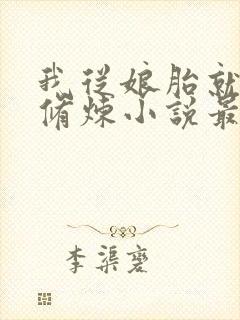 我從娘胎就
脩煉小說最
李渠褒